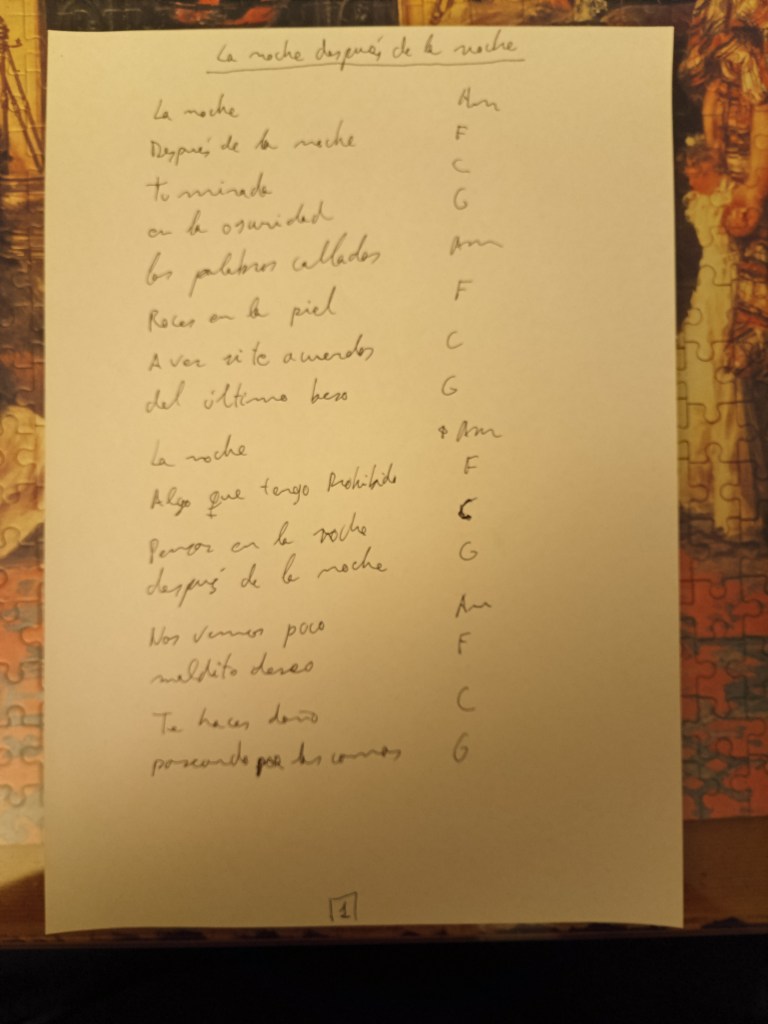 La noche después de la noche
La noche Am
Después de la noche F
tu mirada C
en la osuridad G
las palabras calladas Am
Roces en la piel F
A ver si te acuerdas C
del último beso G
La noche Am
Algo que tengo Prohibido F
Pensar en la noche C
después de la noche G
Nos vemos poco Am
maldito deseo F
Te haces daño C
paseando por las camas G
1